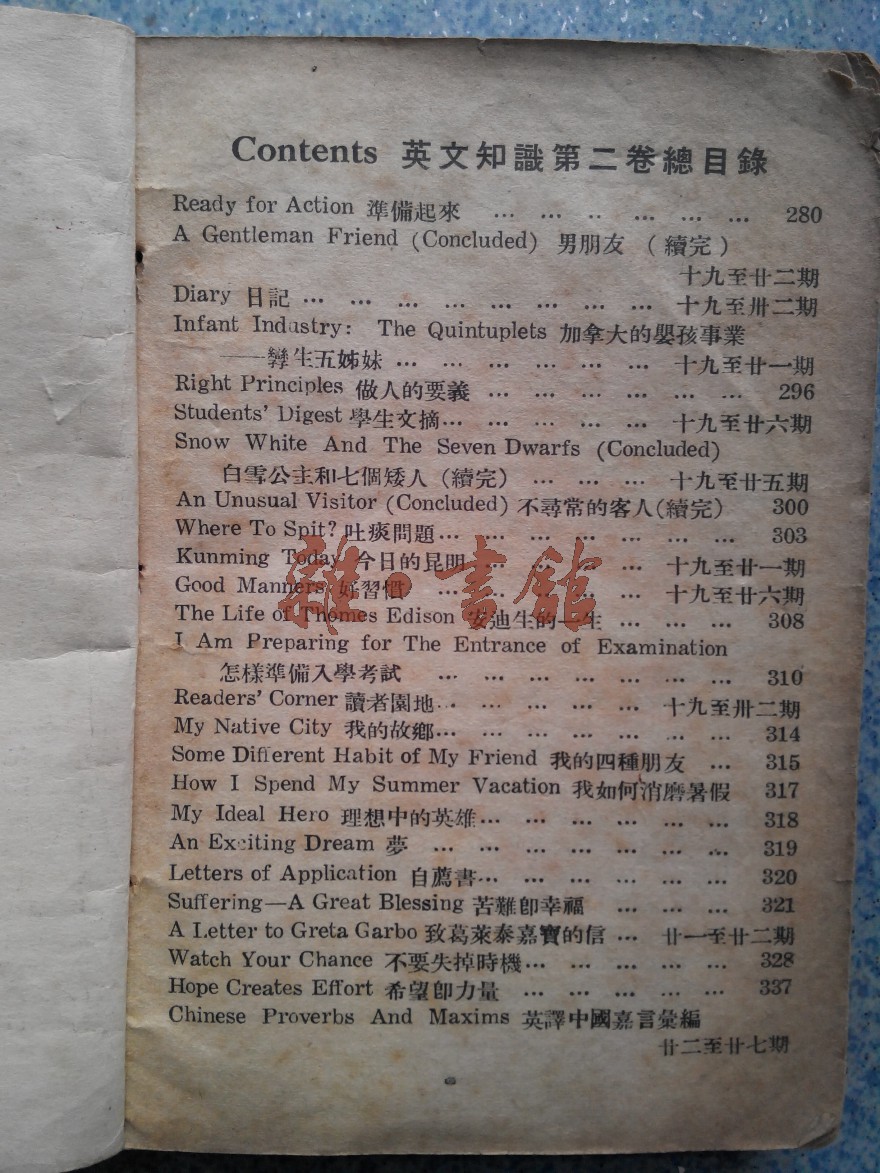 Contents 英文知識第二卷總目錄
Ready for Action 準備起來 ... ... .. ... ... ... 280
A Gentleman Friend (Concluded) 男朋友 (續完)
十九至廿二期
Diary 日記 ... ... ... ... ... ... ... ... 十九至卅二期
Infant Industry: The Quintuplets 加拿大的嬰孩事業
——孿生五姊妹 ... ... ... ... ... ... 十九至廿一期
Right Principles 做人的要義 ... ... ... ... ... ... 296
Students' Digest 學生文摘... ... ... ... ... 十九至廿六期
Snow White And The Seven Dwarfs (Concluded)
白雪公主和七個矮人 (續完) ... ... ... 十九至廿五期
An Unusual Visitor (Concluded) 不尋常的客人(續完) 300
Where To Spit? 吐痰問題... ... ... ... ... ... ... 303
Kunming Today 今日的昆明 ... ... ... ... 十九至廿一期
Good Manners 好習慣 ... ... ... ... ... 十九至廿六期
The Life of Thomes Edison 安迪生的一生 ... ... ... 308
I Am Preparing for The Entrance of Examination
怎樣準備入學考試 ... ... ... ... ... ... ... 310
Readers' Corner 讀者園地... ... ... ... ... 十九至卅二期
My Native City 我的故鄉... ... ... ... ... ... ... 314
Some Different Habit of My Friend 我的四種朋友 ... 315
How I Spend My Summer Vacation 我如何消磨暑假 317
My Ideal Hero 理想中的英雄... ... ... ... ... ... 318
An Exciting Dream 夢 ... ... ... ... ... ... ... 319
Letters of Application 自薦書... ... ... ... ... ... 320
Suffering—A Great Blessing 苦難卽幸福 ... ... ... 321
A Letter to Greta Garbo 致葛萊泰嘉寶的信 ... 廿一至廿二期
Watch Your Chance 不要失掉時機... ... ... ... ... 328
Hope Creates Effort 希望卽力量 ... ... ... ... ... 337
Chinese Proverbs And Maxims 英譯中國嘉言彙編
廿二至廿七期
雜·書館